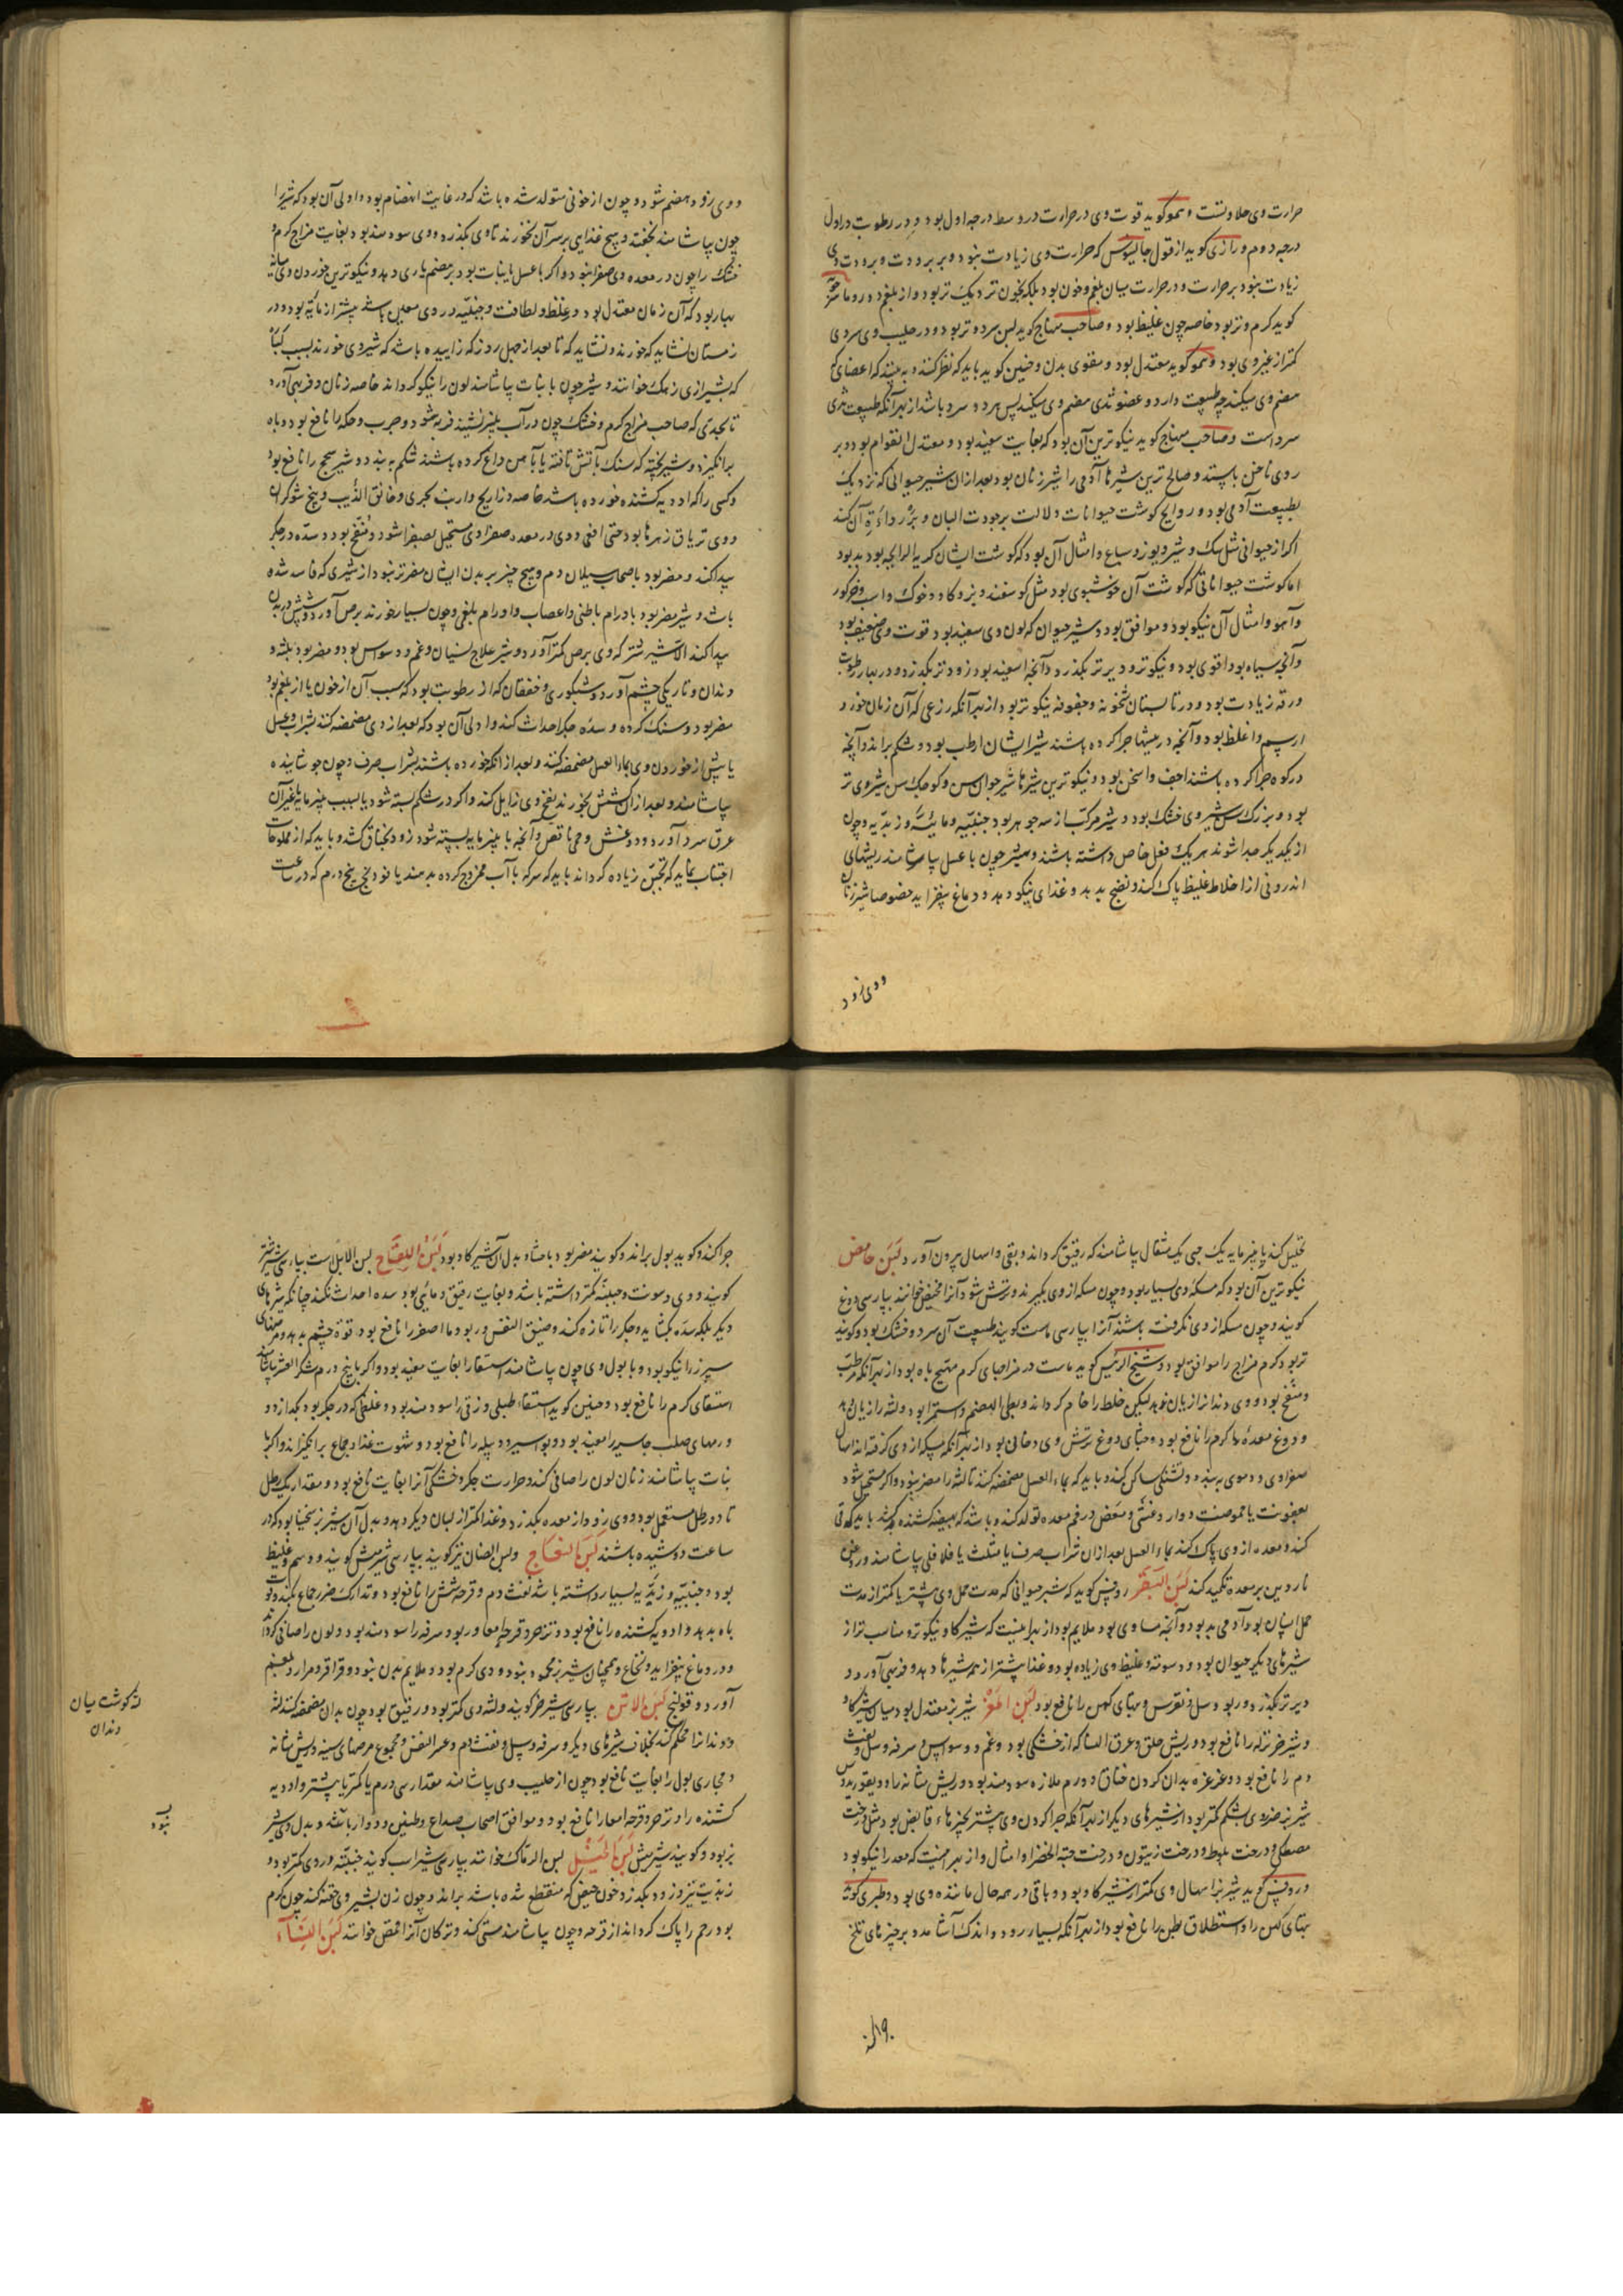 حرارت وی حلاوتست و همو کوید قوت وی در حرارت در وسط درجه اول بود و در رطوبت در اول
درجه دوم و رازی کوید از قول جالینوس که حرارت وی زیادت نبود و بر برودت و برودت وی
زیادت نبود بر حرارت و در حرارت میان بلغم و خون بود بلکه بخون نزدیک تر بود و از بلغم دور و ماسرجویه
کوید کرم و تر بود خاصه چون غلیظ بود و صاحب منهاج کوید لبن سرد و تر بود و در حلیب وی سردی
کمتر از غیر وی بود و همو کوید معتدل بود و مقوی بدن و حنین کوید باید که نظر کنند و به بینند که اعضای
هضم وی میکند چه طبیعت دارد و عضو ثدی هضم وی میکند پس هر دو سرد باشد از بهر آنکه طبیعت ثدی
سرد است و صاحب منهاج کوید نیکوترین آن بود که بغایت سفید بود و معتدل القوام بود و بر
روی ناخن بایستد و صالح ترین شیرها آدمی را شیر زنان بود بعد از ان شیر حیوانی که نزدیک
بطبیعت آدمی بود و روایح کوشت حیوانات دلالت بر جودت البان و بر رداءة آن کند
اکر از حیوانی مثل سک و شیر و یوز و سباع و امثال آن بود که کوشت ایشان کریه الرایحه بود بد بود
اما کوشت حیواناتی که کوشت آن خوشبوی بود مثل کوسفند و بز و کاو و خوک و اسب و خر کور
و آهو و امثال آن نیکو بود و موافق بود و شیر حیوان که لون وی سفید بود قوت وی ضعیف بود
و آنچه سیاه بود اقوی بود و نیکوتر و دیرتر بکذرد و آنچه اسفید بود زودتر بکذرد و در بهار رطوبت
و رقه زیادت بود و در تابستان ثخونه و جفوفه نیکوتر بود از بهر آنکه رزعی که آن زمان خورد
ارسم و اغلظ بود و آنچه در بیشها چرا کرده باشند شیر ایشان ارطب بود و شکم براند و آنچه
در کوه چرا کرده باشند اجف و اسخن بود و نیکوترین شیرها شیر جوان سن و کوچک سن شیر وی تر
بود و بزرک سن شیر وی خشک بود و شیر مرکب از سه جوهر بود جبنیه و مائیة و زبدیه و چون
از یکدیکر جدا شوند هر یک فعل خاص داشته باشند و شیر چون با عسل بیاشامند ریشهای
اندرونی از اخلاط غلیظ پاک کند و نضج بدهد و غذای نیکو دهد و دماغ بیفزاید خصوصا شیر زنان
ووی زود
ووی زود هضم شود و چون از خونی متولد شده باشد که در غایت انهضام بود و اولی آن بود که شیر را
چون بیاشامند نخفته و هیچ غذایی بر سر آن نخورند تا وی بکذرد و وی سودمند بود بغایت مزاج کرم و
خشک را چون در معده وی صفرا نبود و اکر با عسل یا نبات بود بر هضم یاری دهد و نیکوترین خوردن وی میانه
بهار بود که آن زمان معتدل بود و غلظ و لطافت و جبنیه در وی معین باشد بیشتر از مائیه بود و در
زمستان نشاید که خورند و نشاید که تا بعد از چهل روز که زاییده باشد که شیر وی خورند بسبب لبأ
که بشیرازی زهک خوانند و شیر چون با نبات بیاشامند لون را نیکو کرداند خاصه زنان و فربهی آورد
تا بحدی که صاحب مزاج کرم و خشک چون در آب بلینز نشیند فربه شود و جرب و حکه را نافع بود و باه
برانکیزد و شیر پخته که سنک بآتش تافته یا بآهن داغ کرده باشند شکم به بندد و شیر سحج را نافع بود
و کسی را که ادویه کشنده خورده باشد خاصه ذراریح و ارنب بحری و خانق الذیب و بیخ شوکران
ووی تریاق زهرها بود حتی افعی و وی در معده صفراوی مستحیل بصفرا شود و منفخ بود و سده در جکر
پیدا کند و مضر بود باصحاب سیلان دم و هیچ چیز بر بدن ایشان مضرتر نبود از شیری که فاسد شده
باشد و شیر مضر بود باورام باطنی و اعصاب و اورام بلغمی و چون بسیار خورند برص آورد و شپش در بدن
پیدا کند الا شیر شتر که وی برص کمتر آورد و شیر علاج نسیان و غم و وسواس بود و مضر بود بلثه و
دندان و تاریکی چشم آورد و شبکوری و خفقان که از رطوبت بود که سبب آن از خون یا از بلغم بود
مضر بود و سنک کرده و سده جکر احداث کند و اولی آن بود که بعد از وی مضمضه کنند بشراب و عسل
یا پیش از خوردن وی بماء العسل مضمضه کنند و بعد از آنکه خورده باشند بشراب صرف و چون جوشانیده
بیاشامند و بعد از ان کشمش بخورند نفخ وی زایل کند و اکر در شکم بسته شود یا بسبب پنیر مایه یا غیر آن
عرق سرد آورد و غشی و حمی نافض و آنچه با پنیر مایه بسته شود زود بخناق کشد و باید که از مملوحات
اجتناب نماید که تجبن زیاده کرداند باید که سرکه با آب ممزوج کرده بدهند یا فودنج پنج درم که در ساعت
تحلیل کند یا پنیر مایه یک حبی یک مثقال بیاشامند که رقیق کرداند و بقی و اسهال بیرون آورد لبن حامض
نیکوترین آن بود که مسکه وی بسیار بود و چون مسکه از وی بکیرند و ترش شود آنرا مخیض خوانند بپارسی دوغ
کویند و چون مسکه از وی نکرفته باشند آنرا بپارسی ماست کویند طبیعت آن سرد و خشک بود و کویند
تر بود کرم مزاج را موافق بود و شیخ الرئیس کوید ماست در مزاجهای کرم مهیج باه بود از بهر آنکه مرطب
و منفخ بود و وی دندانرا زیان ندهد لیکن خلط را خام کرداند و بطی الهضم و استمرا بود و لثه را زیان دهد
و دوغ معده کرم را نافع بود و جشای دوغ ترش وی دخانی نبود از بهر آنکه مسکه از وی کرفته اند اسهال
صفراوی و دموی به بندد و تشنکی ساکن کند و باید که بماء العسل مضمضه کنند تا لثه را مضر نبود و اکر مستحیل شود
بعفونت یا حموضت دوار و غشی و مغص در فم معده تولد کند و باشد که بهیضه کشنده کشد باید که قی
کنند و معده از وی پاک کنند بماء العسل بعد از ان شراب صرف یا مثلث یا فلافلی بیاشامند و روغن
ناردین بر معده تکمید کنند لبن البقر روفس کوید که شیر حیوانی که مدت حمل وی بیشتر یا کمتر از مدت
حمل انسان بود آدمی بد بود و آنچه مساوی بود ملایم بود از بهر اینست که شیر کاو نیکوتر و مناسب تر از
شیرهای دیکر حیوان بود و دسومة و غلیظی وی زیاده بود و غذا بیشتر از همه شیرها دهد و فربهی آورد و
دیرتر بکذرد و ربو و سل و نقرس و تبهای کهن را نافع بود لبن المعز شیر بز معتدل بود میان شیر کاو
و شیر خر نزله را نافع بود و ریش حلق و عرق النسا که از خشکی بود و غم و وسواس و سرفه و سل و نفث
دم را نافع بود و غرغره بدان کردن خناق و ورم ملازه سودمند بود و ریش مثانه را و دیسقوریدوس
شیر بز ضرر وی بشکم کمتر بود از شیرهای دیکر از بهر آنکه چرا کردن وی بیشتر بچیزهاء قابض بود مثل درخت
مصطکی و درخت بلوط و درخت زیتون و درخت حبة الخضرا و امثال و از بهر اینست که معده را نیکو بود
و روفس کوید شیر بز اسهال وی کمتر از شیر کاو بود و باقی در همه حال مانند وی بود و طبری کوید
تبهای کهن را و استطلاق بطن را نافع بود از بهر آنکه بسیار رود و اندک آشامد و بر چیزهای تلخ
چرا کند و کوید بول براند و کویند مضر بود باحشا و بدل آن شیر کاو بود لبن اللقاح لبن الابل است بپارسی شیر شتر
کویند و وی دسومت و جبنیه کمتر داشته باشد و بغایت رقیق و مائی بود سده احداث نکند چنانکه شیرهای
دیکر بلکه سده بکشاید و جکر را تازه کند و ضیق النفس و ربو و ماء اصفر را نافع بود و قوة چشم بدهد و مرضهای
سپرز را نیکو بود و با بول وی چون بیاشامند استسقا را بغایت مفید بود و اکر با پنج درم شکر العشر بیاشامند
استسقای کرم را نافع بود و حنین کوید استسقاء طبلی و زقی را سودمند بود و غلظی که در جکر بود بکدازد و
ورمهای صلب جاسیه را مفید بود و بواسیر و دبیله را نافع بود و شهوت غذا و جماع برانکیزاند و اکر با
نبات بیاشامند زنان لون را صافی کند و حرارت جکر و خشکی آنرا بغایت نافع بود و مقدار یک رطل
تا دو رطل مستعمل بود و وی زود از معده بکذرد و غذا کمتر از لبان دیکر دهد و بدل آن شیر بز سخنیا بود که در
ساعت دوشیده باشند لبن النعاج و لبن الضان نیز کویند بپارسی شیر میش کویند و دسم و غلیظ
بود و جبنیه و زبدیه بسیار داشته باشد نفث دم و قرحه شش را نافع بود و تدارک ضرر جماع بکند و قوت
باه بدهد و ادویه کشنده را نافع بود و تزحر و قرحه امعا و ربو و سرفه را سودمند بود و لون را صافی کرداند
و در دماغ بیفزاید و نخاع و همچنان شیر بز محمود نبود و وی کرم بود و ملایم بدن نبود و قراقر و مرار و بلغم
آورد و قولنج لبن الاتن بپارسی شیر خر کویند و لثه وی کمتر بود و رقیق بود چون بدان مضمضه کنند لثه
و دندانرا محکم کند بخلاف شیرهای دیکر و سرفه و سل و نفث دم و عسر النفس و مجموع مرضهای سینه و ریش مثانه
و مجاری بول را بغایت نافع بود چون از حلیب وی بیاشامند مقدار سی درم یا کمتر یا بیشتر و ادویه
کشنده را و تزحر و قرحه امعا را نافع بود و موافق اصحاب صداع و طنین و دوار باشد و بدل وی شیر
بز بود و کویند شیر میش لبن الخیل لبن الرماک خوانند بپارسی شیر اسب کویند جبنیه در وی کمتر بود و
زبدیت نیز و زود بکذرد و خون حیض که منقطع شده باشد براند و چون زن بشیر وی حقنه کند چون کرم
بود رحم را پاک کرداند از قرحه و چون بیاشامند مستی کند و ترکان آنرا قمز خوانند لبن النساء
لثه کوشت میان
دندان
نبود